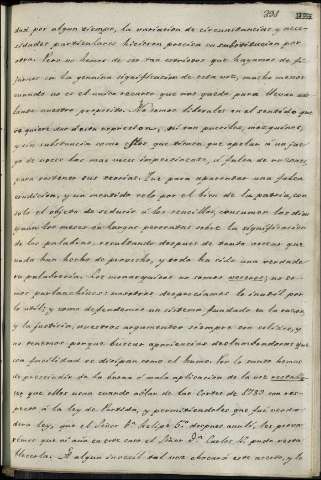 291
dad por algun tiempo, la variacion de circunstancias y nece-
sidades particulares hicieron precisa su substitucion por
otra. Pero no hemos de ser tan escrupulosos que hayamos de fi-
jarnos en la genuina significacion de esta voz, mucho menos
cuando no es el unico recurso que nos queda para llevar ade-
lante nuestro proposito. No somos liberales en el sentido que
se quiere dar á esta expresion; ni tan pueriles, mezquinos,
y sin substancia como ellos que tienen que apelar á un jue-
go de voces las mas veces impertinente, á falta de razones
para sostener sus teorias. Que para aparentar una falsa
condicion, y un mentido celo por el bien de la patria, con
solo el objeto de seducir á los sencillos, consuman los dias
y aun los meses en largas peroratas sobre la significacion
de las palabras, resultando despues de tanto vocear que
nada han hecho de provecho, y todo ha sido una verdade-
ra palabreria. Los monarquicos no somos no so-
mos parlanchines: nosotros despreciamos lo inutil por
lo util; y como defendemos un sistema fundado en la razon
y la justicia, nuestros argumentos siempre son solidos, y
no tenemos porque buscar apariencias deslumbradoras que
con facilidad se disipan como el humo. Por lo tanto hemos
de prescindir de la buena ó mala aplicacion de la voz
que ellos usan cuando hablan de las Cortes de 1789 con res-
pecto á la ley de Partida, y permitiendoles que fue verda-
dera ley, que el Señor Dn. Felipe 5º. despues anuló, les proba-
remos que ni aun en este caso el Señor Dn. Carlos 4º. pudo resta-
blecerla. Si algun imbecil tal vez abrazará este acceso, y lo